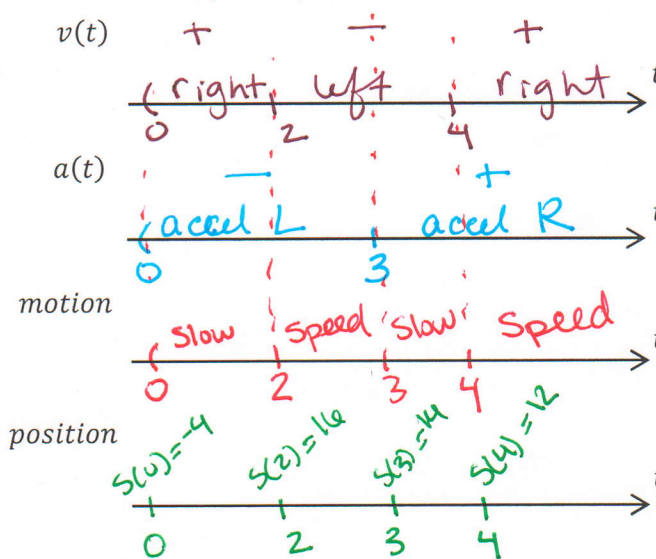 v(t) + − +
right left right t
0 2 4
a(t) − +
accel L accel R t
0 3
motion
slow speed slow speed t
0 2 3 4
position
S(0)=-4 S(2)=16 S(3)=14 S(4)=12
t
0 2 3 4